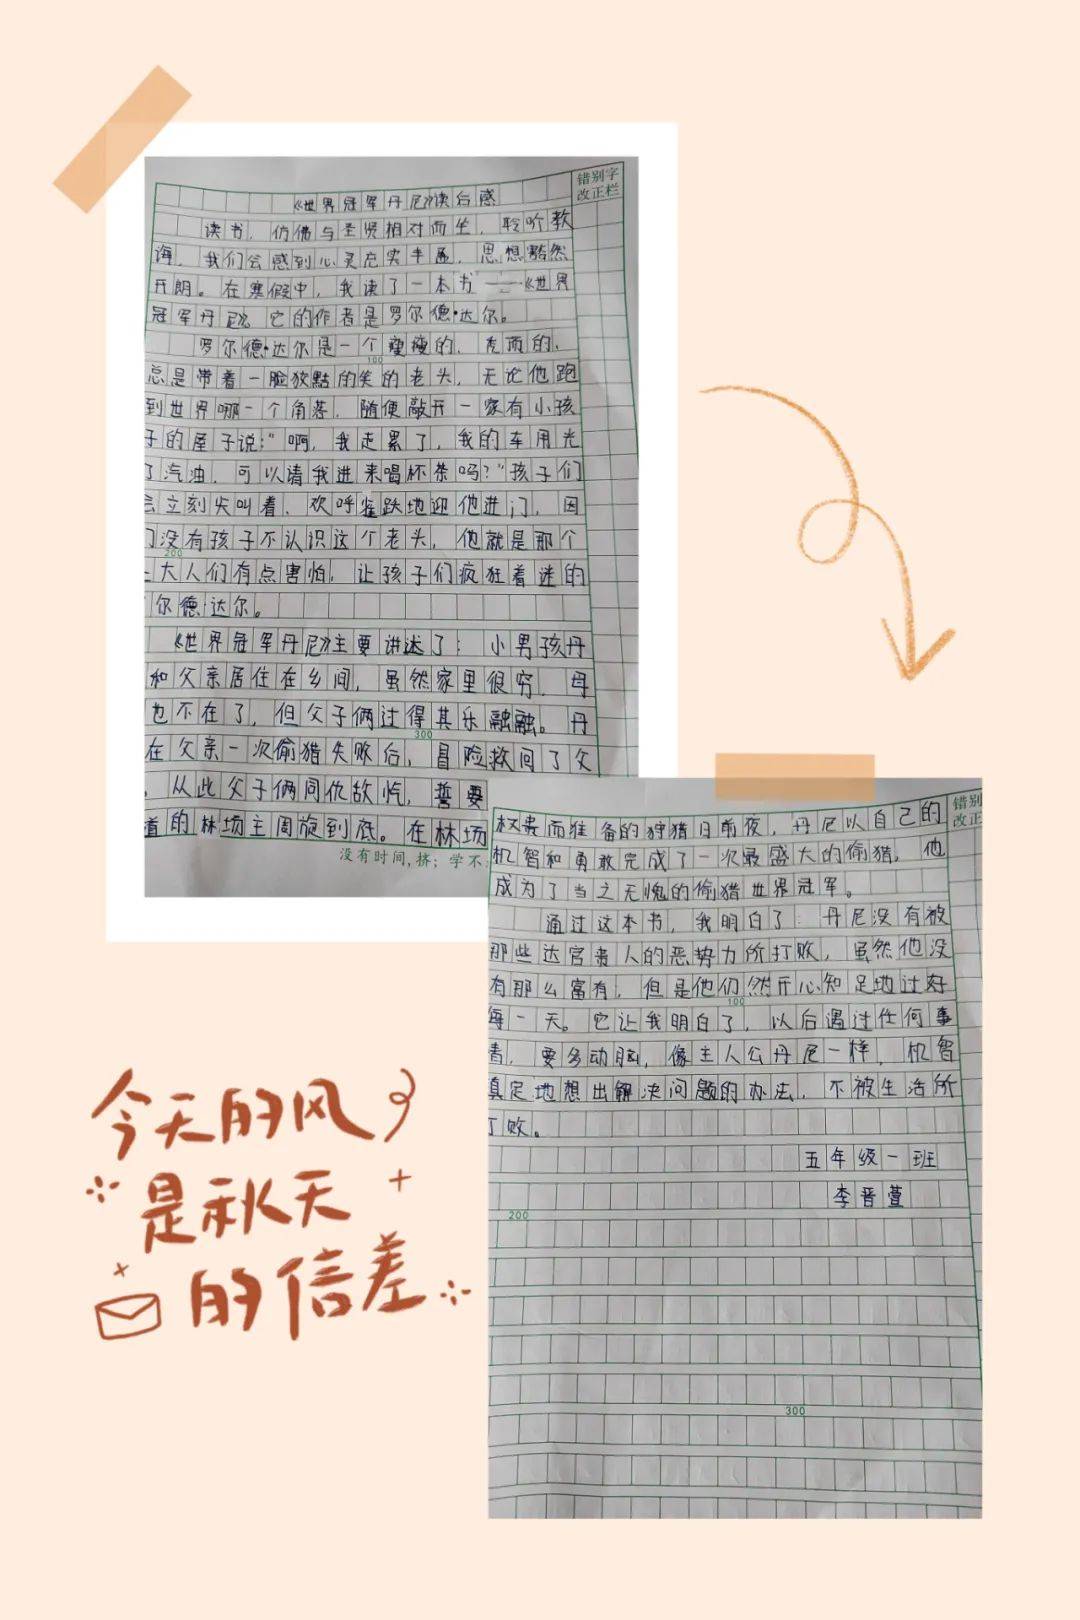 错别字
改正栏
《世界冠军丹尼》读后感
读书，仿佛与圣贤相对而坐，聆听教
诲，我们会感到心灵充实丰盈，思想豁然
开朗。在寒假中，我读了一本书——《世界
冠军丹尼》，它的作者是罗尔德·达尔。
罗尔德·达尔是一个瘦瘦的、秃顶的、
100
总是带着一脸狡黠的笑的老头，无论他跑
到世界哪一个角落，随便敲开一家有小孩
子的屋子说：“啊，我走累了，我的车用光
了汽油，可以请我进来喝杯茶吗？”孩子们
会立刻尖叫着、欢呼雀跃地迎他进门，因
没有孩子不认识这个老头，他就是那个
200
大人们有点害怕，让孩子们疯狂着迷的
尔德·达尔。
《世界冠军丹尼》主要讲述了：小男孩丹
和父亲居住在乡间，虽然家里很穷，母
也不在了，但父子俩过得其乐融融。丹
300
在父亲一次偷猎失败后，冒险救回了父
，从此父子俩同仇敌忾，誓要
道的林场主周旋到底。在林场
没有时间,挤；学不
错别
改正
权贵而准备的狩猎日前夜，丹尼以自己的
机智和勇敢完成了一次最盛大的偷猎，他
成为了当之无愧的偷猎世界冠军。
通过这本书，我明白了：丹尼没有被
那些达官贵人的恶势力所打败，虽然他没
有那么富有，但是他们然开心知足地过好
100
每一天。它让我明白了，以后遇过任何事
情，要多动脑，像主人公丹尼一样，机智
镇定地想出解决问题的办法，不被生活所
打败。
五年级一班
李晋萱
200
300
今天的风
是秋天
的信差